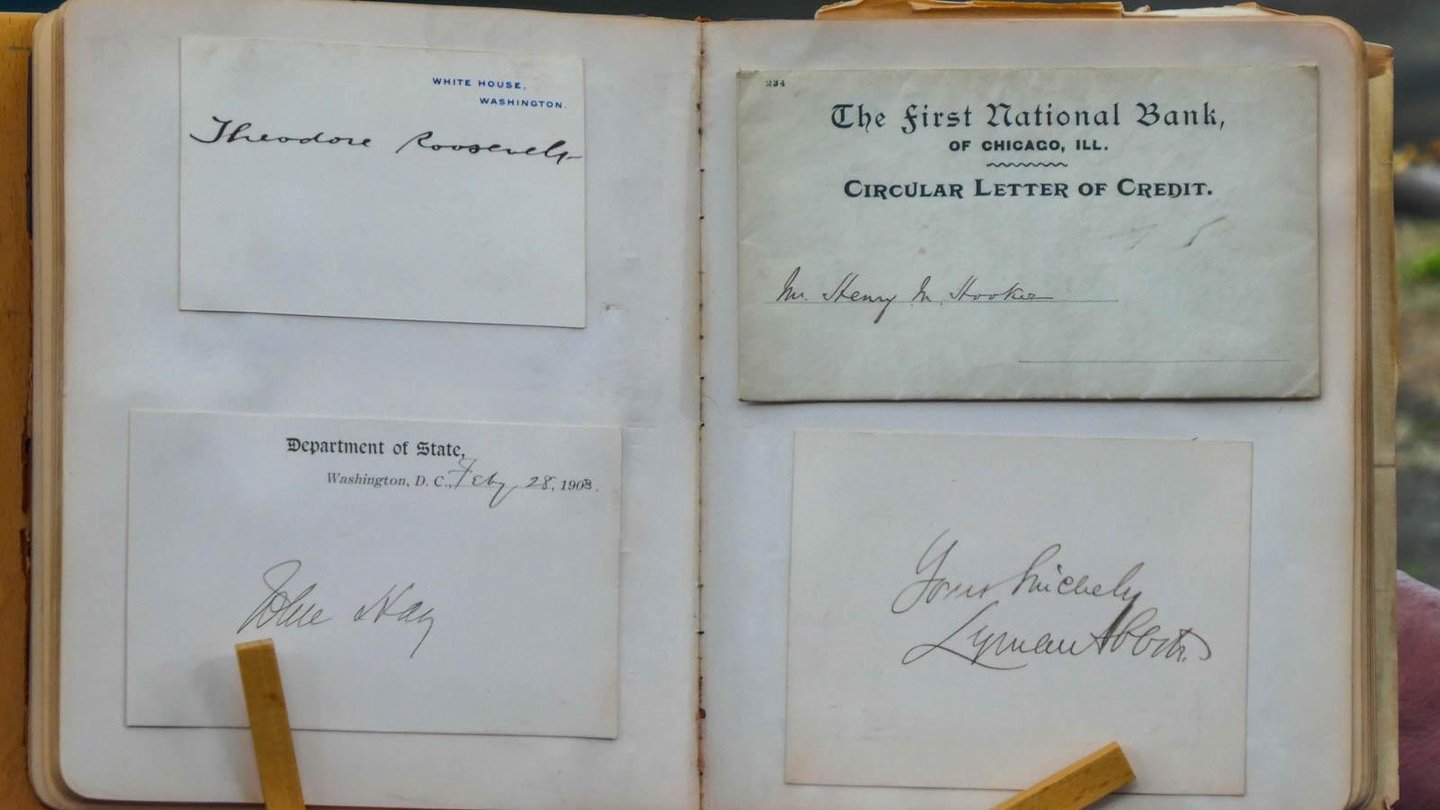 WHITE HOUSE,
WASHINGTON.
Theodore Roosevelt
Department of State,
Washington, D. C., Feby 28, 1903.
John Hay
234
The First National Bank,
OF CHICAGO, ILL.
CIRCULAR LETTER OF CREDIT.
Mr. Henry M. Hooker
Yours Sincerely
Lyman Abbott